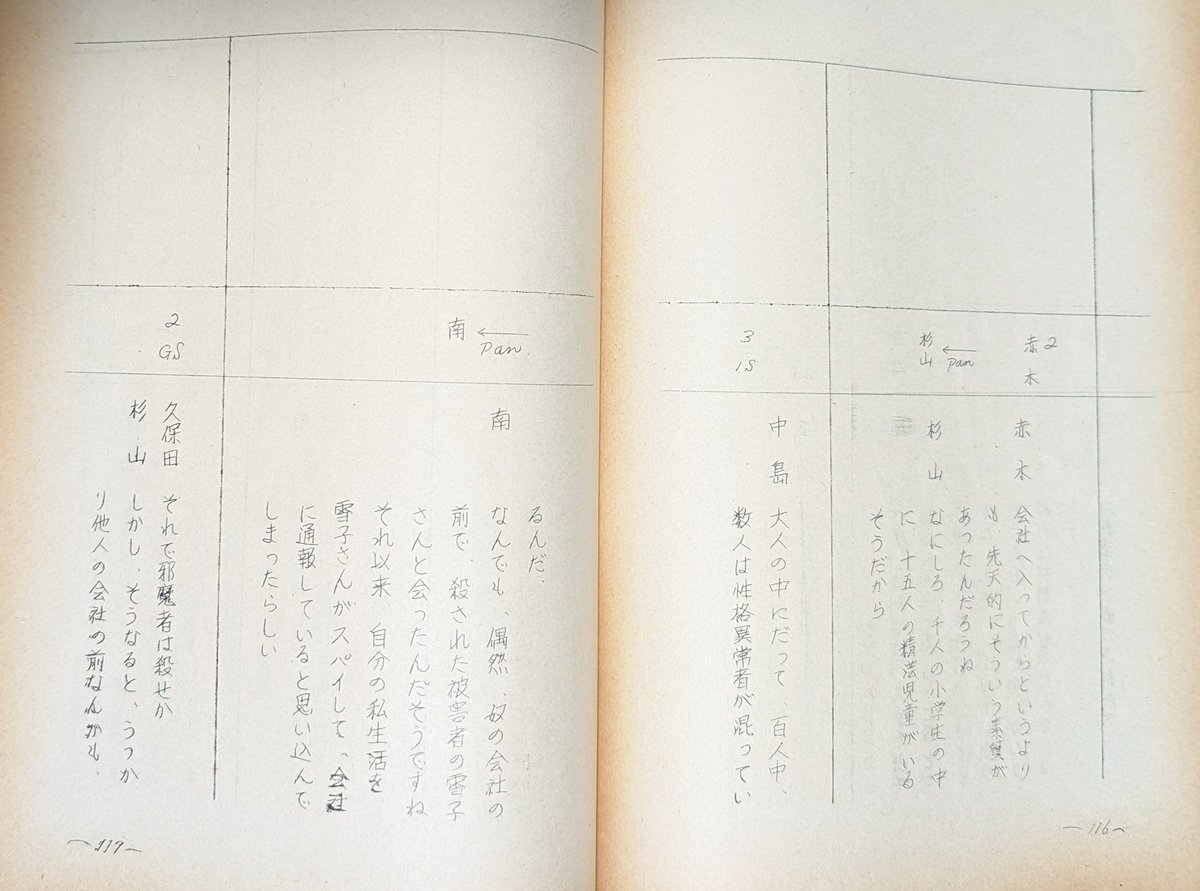 赤木 2
Pan
杉山
赤木 会社へ入ってからというより
も、先天的にそういう素質が
あったんだろうね
杉山 なにしろ、千人の小学生の中
に、十五人の精薄児童がいる
そうだから
3
1S
中島 大人の中にだって、百人中、
数人は性格異常者が混ってい
~116~
Pan.
南
るんだ、
南 なんでも、偶然、奴の会社の
前で、殺された被害者の雪子
さんと会ったんだそうですね
それ以来 自分の私生活を
雪子さんがスパイして、会社
に通報していると思い込んで
しまったらしい
2
GS
久保田 それで邪魔者は殺せか
杉山 しかし、そうなると、うっか
り他人の会社の前なんかも、
~117~